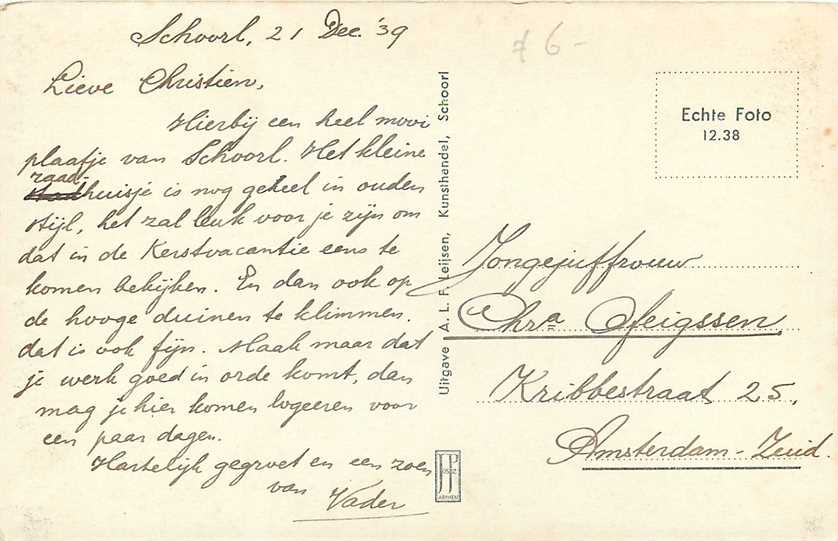 Schoorl, 21 Dec. '39
Lieve Christien,
Hierbij een heel mooi
plaatje van Schoorl. Het kleine
raad-
huisje is nog geheel in ouden
stijl, het zal leuk voor je zijn om
dat in de Kerstvacantie eens te
komen bekijken. En dan ook op
de hooge duinen te klimmen.
dat is ook fijn. Maak maar dat
je werk goed in orde komt, dan
mag je hier komen logeeren voor
een paar dagen.
Hartelijk gegroet en een zoen
van Vader
Uitgave A. L. F. Leijsen, Kunsthandel, Schoorl
JP
ARNHEM
7 6-
Echte Foto
12.38
Jongejuffrouw
Chra
Kribbestraat 25,
Amsterdam-Zuid.